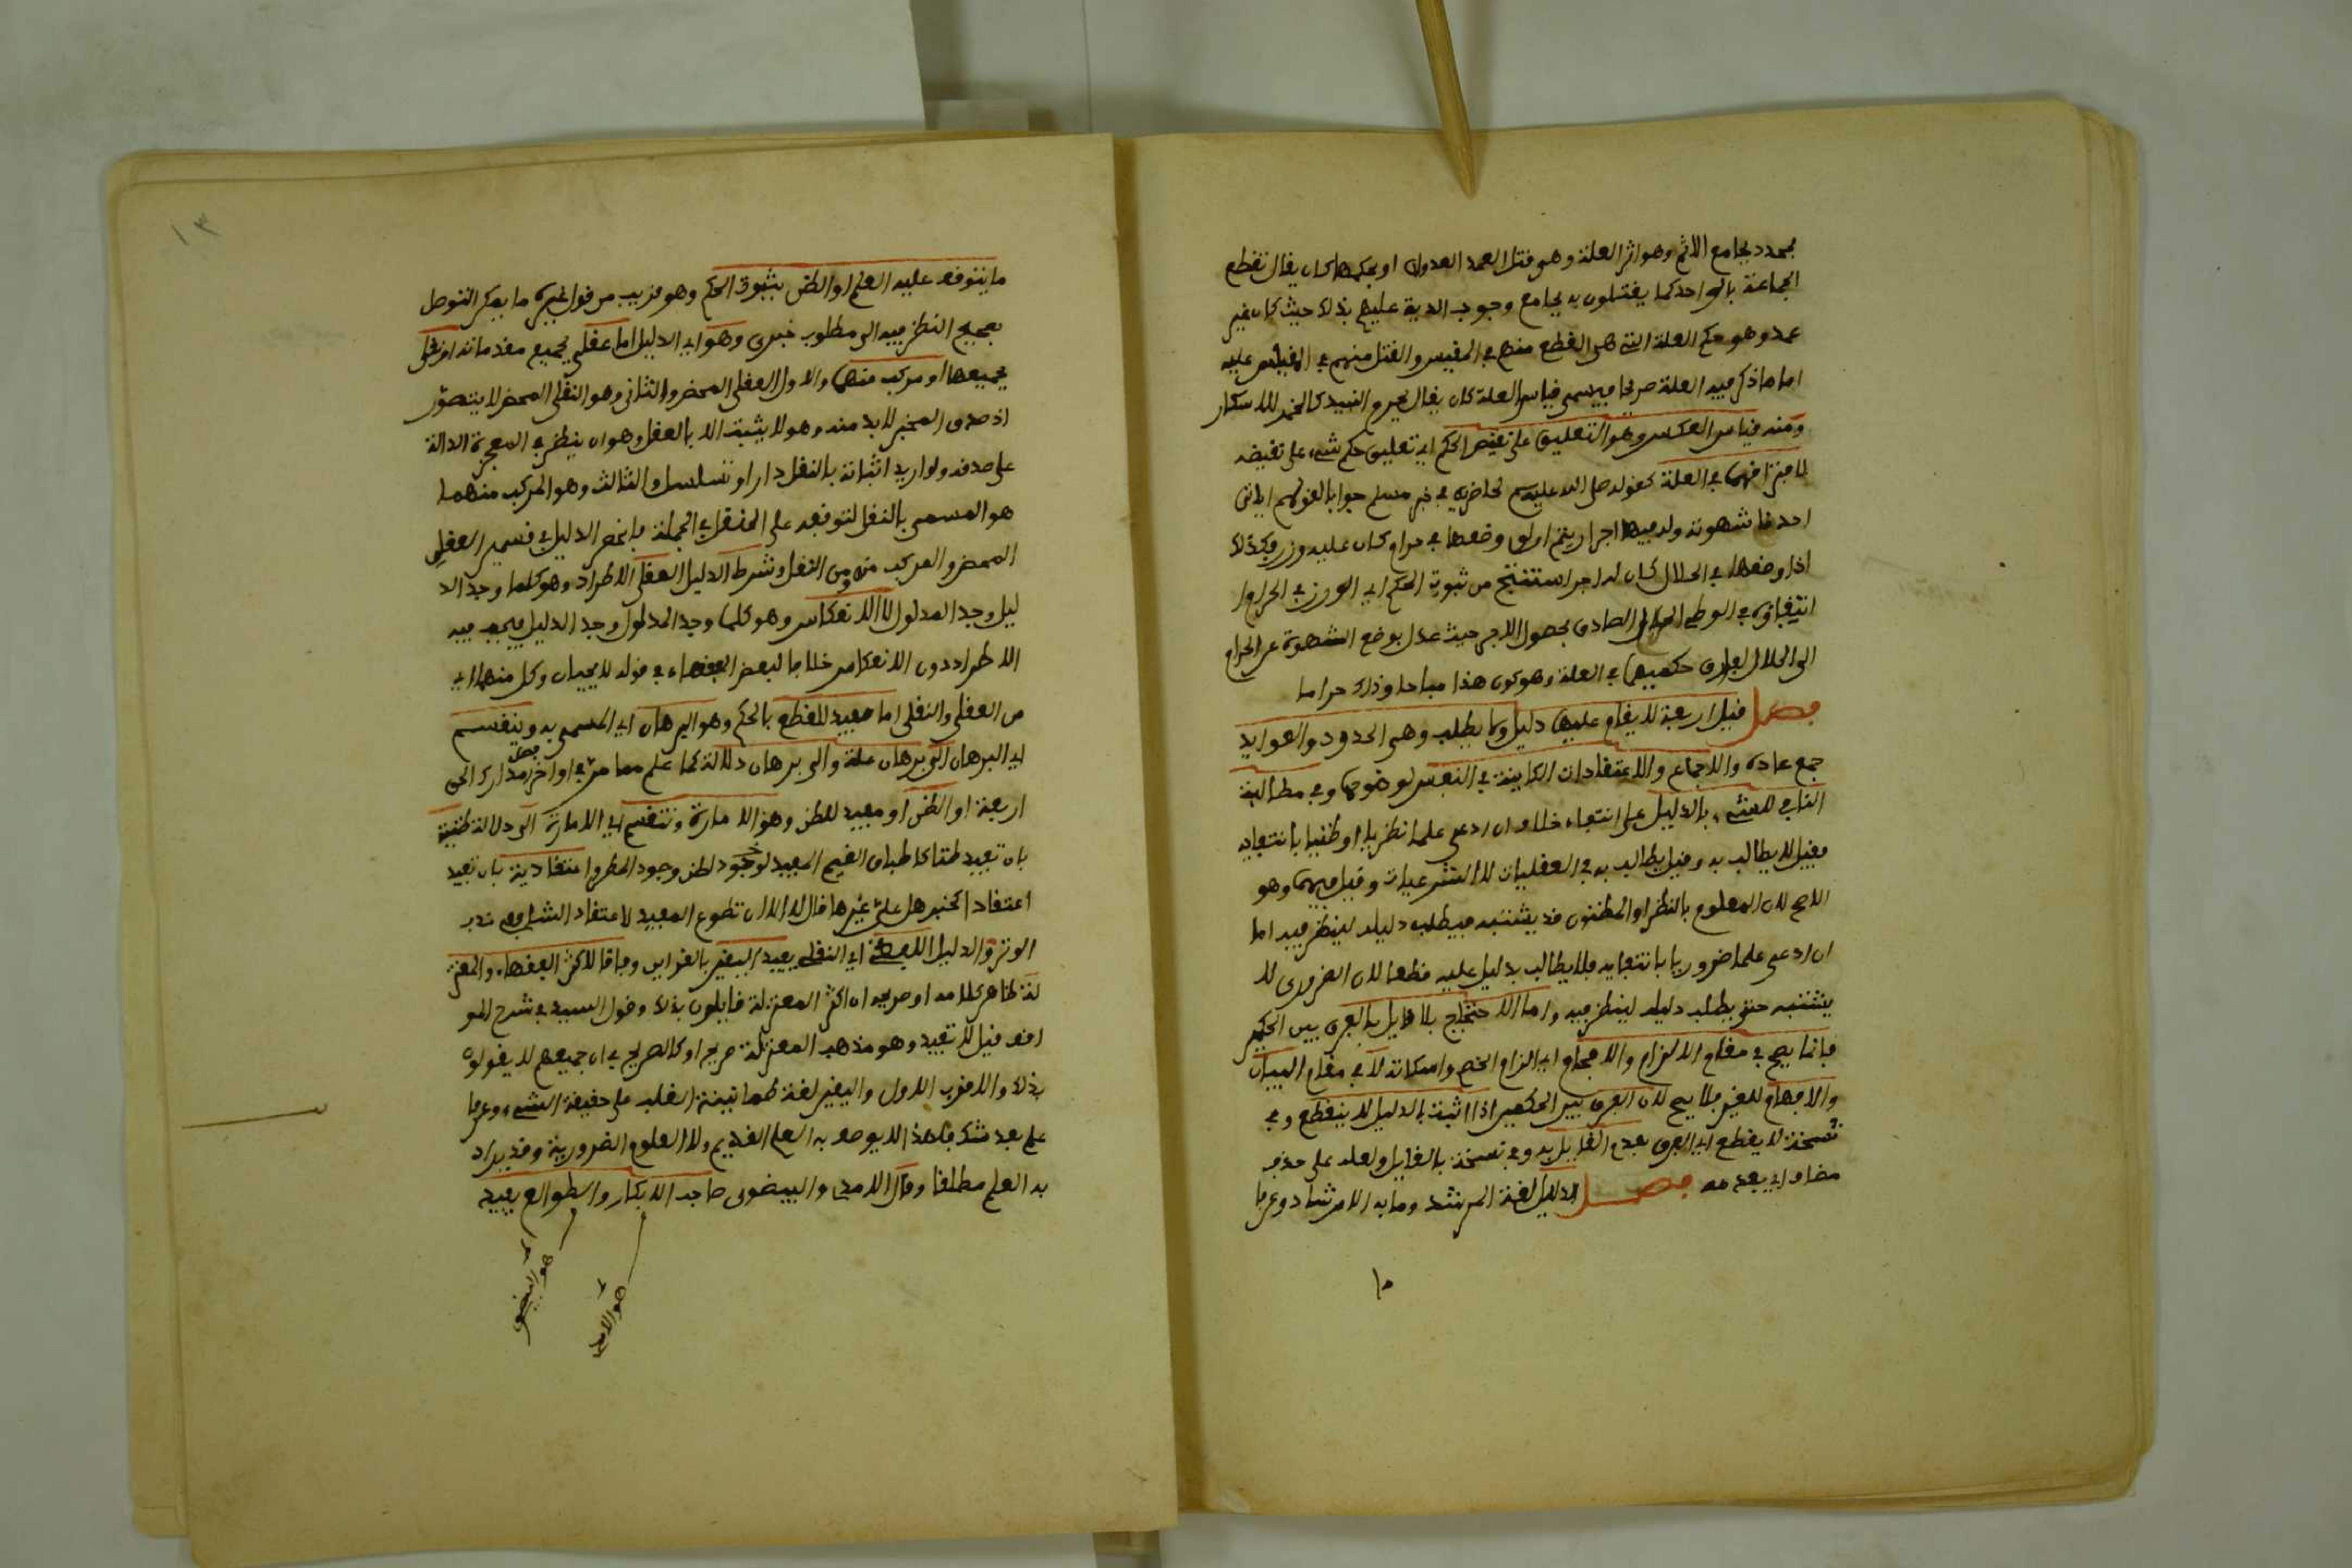 بمحدد بجامع الاثم وهو اثر العلة وهى فتل العمد العدوان او بحكمها كان يقال تقطع
الجماعة بالواحد كما يقتلون به بجامع وجوب الدية عليهم بذلك حيث كان غير
عمد وهو حكم العلة التى هى القطع منهم في المقيس والقتل منهم في المقيس عليه
اما ما ذكر فيه العلة صريحا فيسمى قياس العلة كان يقال يحرم النبيذ كالخمر للاسكار
ومنه قياس العكس وهو التعليق على نقيض الحكم اي تعليق حكم شيء على نقيضه
لافتراقهما في العلة كقوله صلى الله عليه وسلم لحاضريه في خبر مسلم جوابا لقولهم اياتى
احدنا شهوته وله فيها اجر ارايتم لو وضعها في حرام كان عليه وزر فكذلك
اذا وضعها في الحلال كان له اجر استنتج من ثبوت الحكم اي الوزر في الحرام
انتفاؤه في الوطي الحلال الصادق بحصول الاجر حيث عدل بوضع الشهوة عن الحرام
الى الحلال لتعاكس حكميهما في العلة وهو كون هذا مباحا وذلك حراما
فصل قيل اربعة لا يقام عليها دليل ولا يطلب وهى الحدود والعوايد
جمع عادة والاجماع والاعتقادات الكاينة في النفس لوضوحها وفي مطالبة
النافي للشيء بالدليل على انتفاء خلاف ان ادعى علما نظريا او ظنيا بانتفايه
فقيل لا يطالب به وقيل يطالب به في العقليات لا الشرعيات وقيل فيهما وهو
الاصح لان المعلوم بالنظر او المظنون قد يشتبه فيطلب دليله لينظر فيه اما
ان ادعى علما ضروريا بانتفايه فلا يطالب بدليل عليه قطعا لان الضرورى لا
يشتبه حتى يطلب دليله لينظر فيه واما الاحتجاج بلا قايل بالفرق بين الحكمين
فانما يصح في مقام الالزام والافحام اي الزام الخصم واسكاته لا في مقام البيان
والافهام للغير فلا يصح لان الفرق بين الحكمين اذا اثبت بالدليل لا ينقطع وفي
نسخة لا يقطع اي الفرق بعدم القايل به وفي نسخة بالقايل ولعله على حذف
مضاف اي بعدمه فصل الدليل لغة المرشد وما به الارشاد وعرفا
١٠
١٣
ما يتوقف عليه العلم او الظن بثبوت الحكم وهو قريب من قول غيره ما يمكن التوصل
بصحيح النظر فيه الى مطلوب خبرى وهو اي الدليل اما عقلى بجميع مقدماته او نقلى
بجميعها او مركب منهما والاول العقلى المحض والثانى وهو النقلى المحض لا يتصور
اذ صدق المخبر لابد منه وهو لا يثبت الا بالعقل وهو ان ينظر في المعجزة الدالة
على صدقه ولو اريد اثباته بالنقل دار او تسلسل والثالث وهو المركب منهما
هو المسمى بالنقل لتوقفه على النقل في الجملة فانحصر الدليل في قسمين العقلى
المحض والمركب منه ومن النقل وشرط الدليل العقلى الاطراد وهو كلما وجد الد
ليل وجد المدلول لا الانعكاس وهو كلما وجد المدلول وجد الدليل فيجب فيه
الاطراد دون الانعكاس خلافا لبعض الفقهاء في قوله لا يجبان وكل منهما اي
من العقلى والنقلى اما مفيد للقطع بالحكم وهو البرهان اي المسمى به وينقسم
اي البرهان الى برهان علة والى برهان دلالة كما علم مما مر في اواخر فصل مدارك الحق
اربعة او الظن او مفيد للظن وهو الامارة وتنقسم اي الامارة الى دلالة ظنية
بان تفيد ظنا كاطباق الغيم المفيد لوجود لظن وجود المطر واعتقادية بان تفيد
اعتقاد كخبر هل علىّ غيرها قال لا الا ان تطوع المفيد لاعتقاد الشافعى ندب
الوتر والدليل اللفظى اي النقلى يفيد اليقين بالقراين وفاقا لاكثر الفقهاء والمعتز
لة ظاهر كلامه او صريحه ان اكثر المعتزلة قايلون بذلك وقول السيد في شرح المو
اقف قيل لا تفيد وهو مذهب المعتزلة صريح او كالصريح في ان جميعهم لا يقولون
بذلك والاقرب الاول واليقين لغة طمانينة القلب على حقيقة الشيء وعرفا
علم بعد شك فلهذا لا يوصف به العلم القديم ولا العلوم الضرورية وقد يراد
به العلم مطلقا وقال الامدى والبيضوى صاحب الابكار والطوالع يفيد
هو البيضوى
هو الامدى